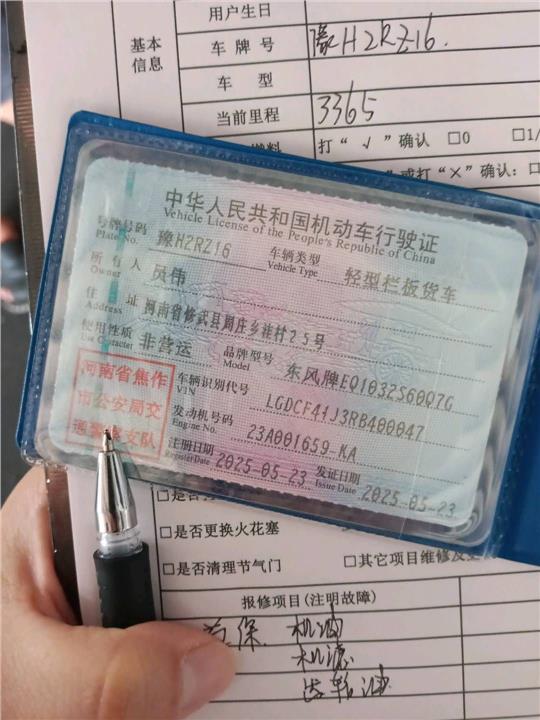 用户生日
基本
信息
车牌号 豫H2RZ16.
车 型
当前里程 3365
燃料 打“√”确认 □0 □1/
或打“×”确认:□
中华人民共和国机动车行驶证
Vehicle License of the People's Republic of China
号牌号码 豫H2RZ16 车辆类型 轻型栏板货车
Plate No. Vehicle Type
所有人 员伟
Owner
住 址 河南省修武县周庄乡洼村25号
Address
使用性质 非营运 品牌型号 东风牌EQ1032S60Q7G
Use Character Model
河南省焦作
市公安局交
通警察支队
车辆识别代号 LGDCF41J3RB400047
VIN
发动机号码 23A001659-KA
Engine No.
注册日期 2025-05-23 发证日期 2025-05-23
Register Date Issue Date
□是否
□是否更换火花塞
□是否清理节气门 □其它项目维修及
报修项目(注明故障)
首保 机油
机滤
齿轮油